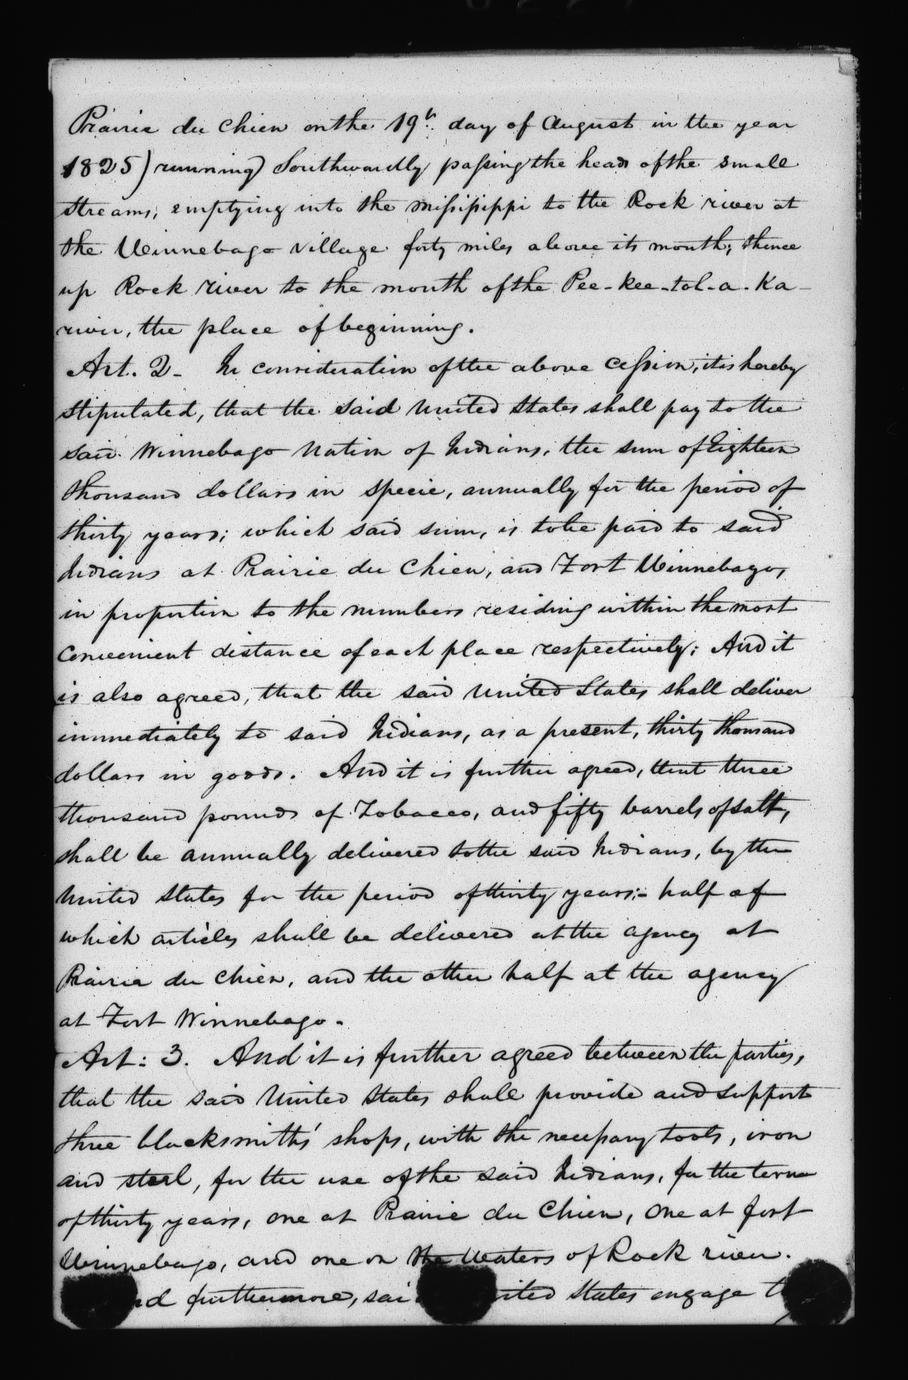 Prairie du Chien on the 19th. day of August in the year
1825) running Southwardly passing the heads of the small
streams, emptying into the Missisippi to the Rock river at
the Winnebago village forty miles above its mouth; thence
up Rock river to the mouth of the Pee-kee-tol-a-Ka-
river, the place of beginning.
Art. 2- In consideration of the above cession, it is hereby
stipulated, that the said United States shall pay to the
said Winnebago Nation of Indians, the sum of Eighteen
thousand dollars in specie, annually for the period of
thirty years; which said sum, is to be paid to said
Indians at Prairie du Chien, and Fort Winnebago,
in proportion to the numbers residing within the most
convenient distance of each place respectively; And it
is also agreed, that the said United States shall deliver
immediately to said Indians, as a present, thirty thousand
dollars in goods. And it is further agreed, that three
thousand pounds of Tobacco, and fifty barrels of salt,
shall be annually delivered to the said Indians, by the
United States for the period of thirty years;- half of
which articles shall be delivered at the agency at
Prairie du Chien, and the other half at the agency
at Fort Winnebago.
Art: 3. And it is further agreed between the parties,
that the said United States shall provide and support
three blacksmiths' shops, with the necessary tools, iron
and steel, for the use of the said Indians, for the term
of thirty years, one at Prairie du Chien, one at fort
Winnebago, and one on the Waters of Rock river.
furthermore, States engage